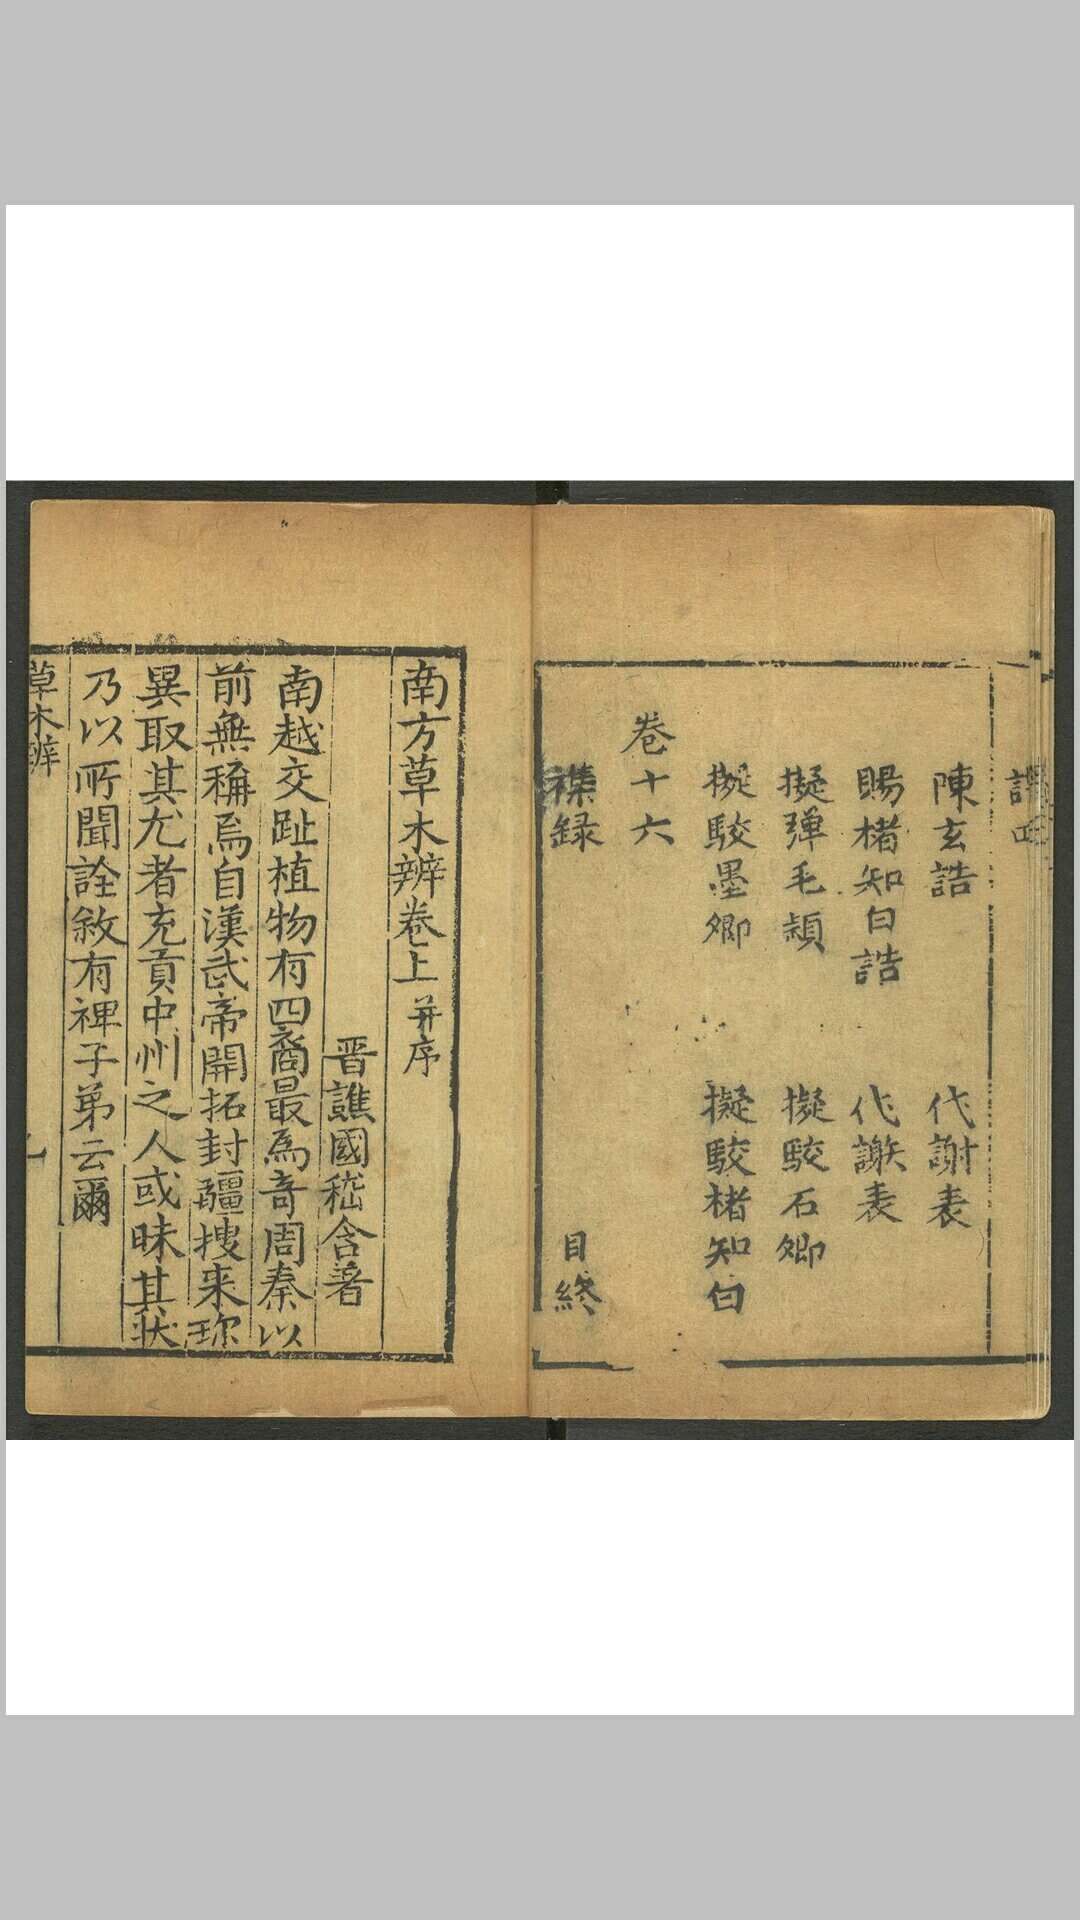 陳玄誥 代謝表
賜楮知白誥 代謝表
擬彈毛穎 擬駮石鄉
擬駮墨鄉 擬駮楮知白
卷十六
襍録 目終
南方草木辨卷上 并序
晋譙國嵇含著
南越交趾植物有四裔最為竒周秦以
前無稱焉自漢武帝開拓封疆搜来珎
異取其尤者充貢中州之人或昧其狀
乃以所聞詮敘有裨子弟云爾
草木辨